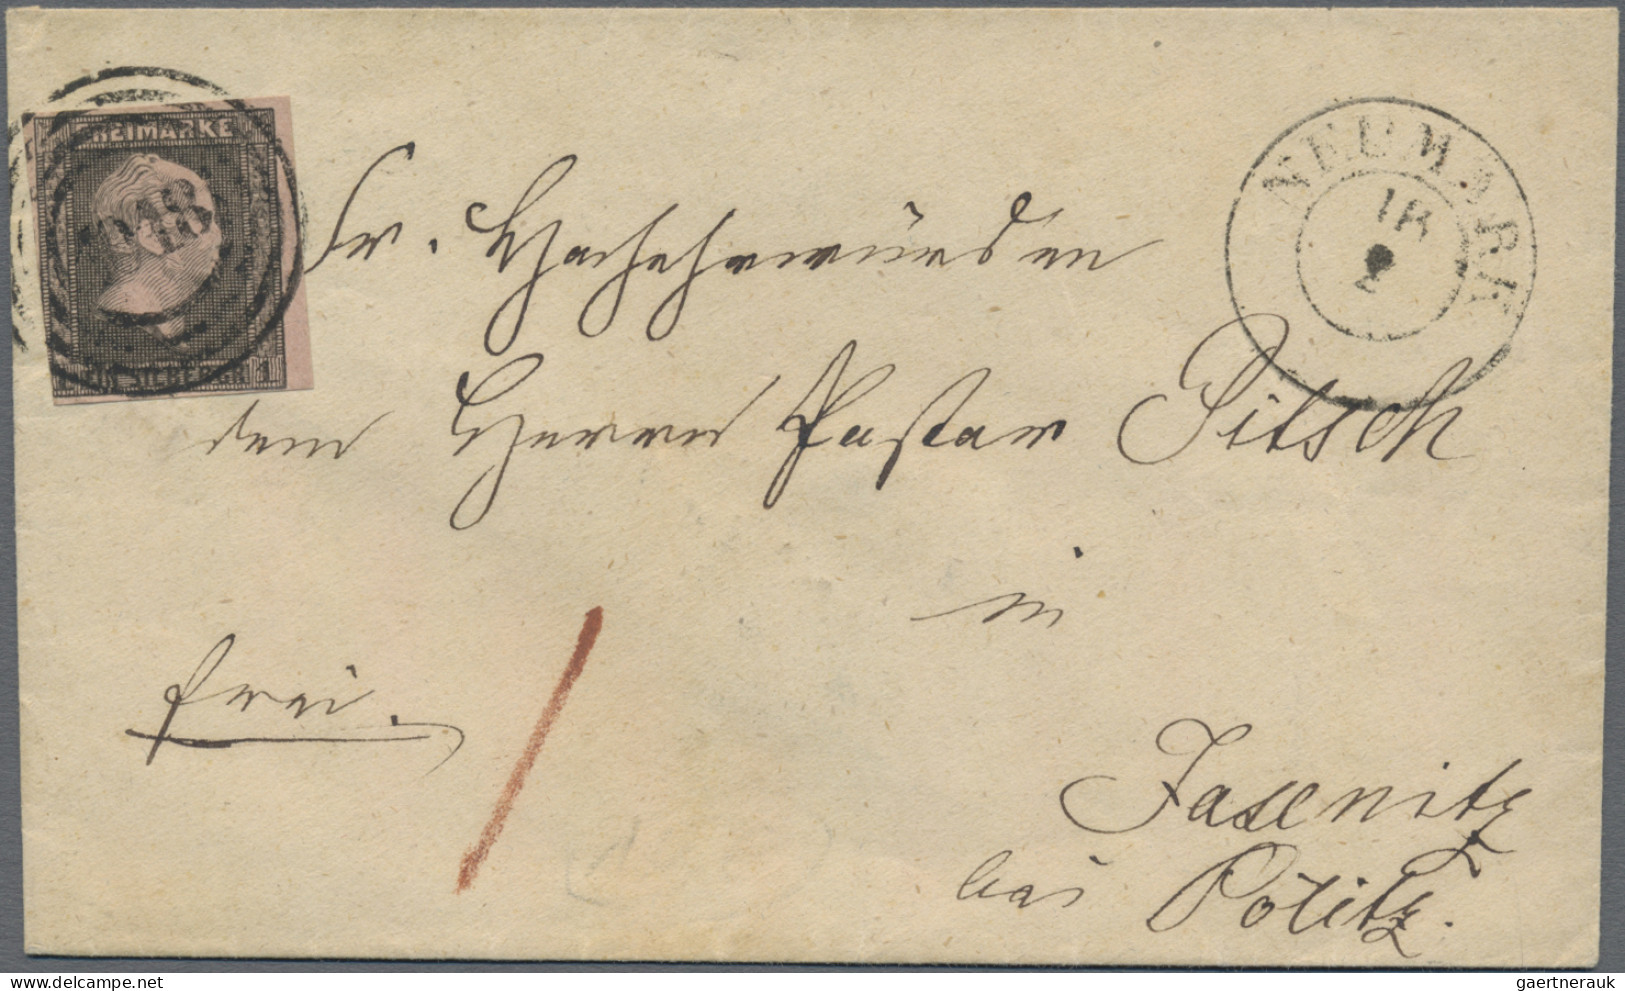 FREIMARKE
SILBERGR. 1
NEUMARK
18
2
Sr. Hochehrwürden
dem Herrn Pastor Pitsch
in
frei.
Jasenitz
bei Pölitz.
gaertnerauk